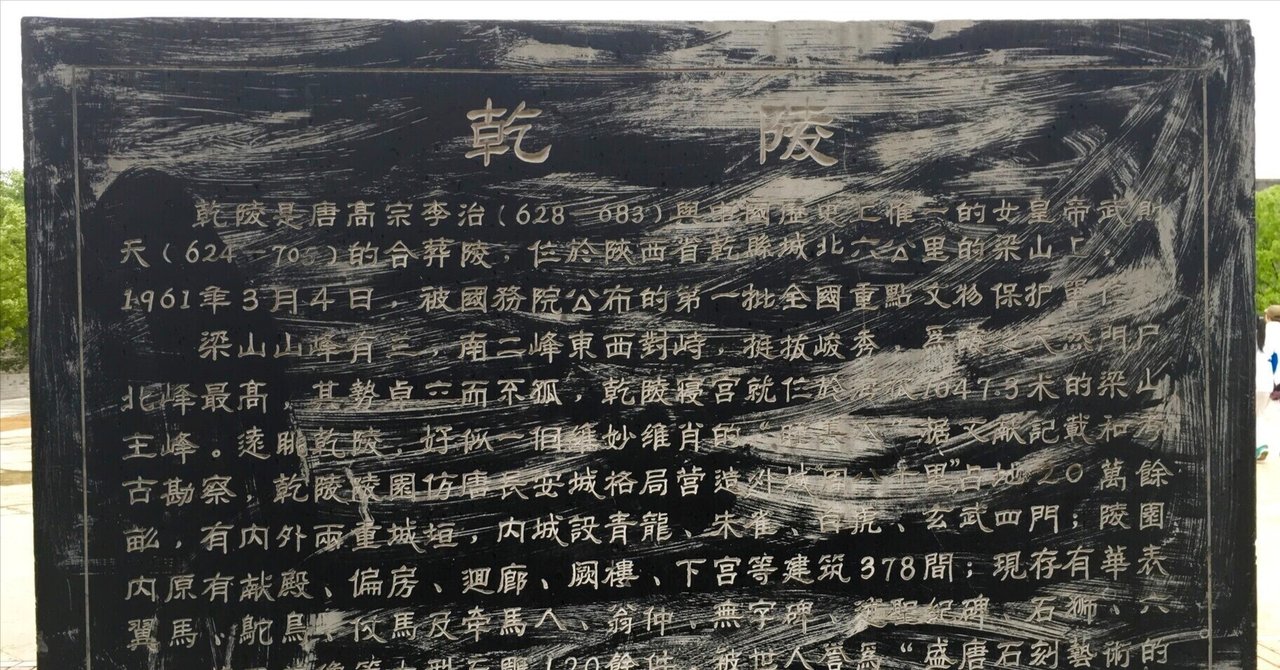 乾 陵
乾陵是唐高宗李治(628—683)與中國歷史上惟一的女皇帝武則
天(624—705)的合葬陵，位於陝西省乾縣城北六公里的梁山上。
1961年3月4日，被國務院公布的第一批全國重點文物保护單位。
梁山山峰有三，南二峰東西對峙，挺拔峻秀，爲陵 天然門户
北峰最高，其勢卓立而不孤，乾陵寝宫就位於海拔1047.3米的梁山
主峰。遠眺乾陵，好似一個維妙维肖的“睡美人”据文献記載和考
古勘察，乾陵陵園仿唐長安城格局营造外城周八十里”占地20萬餘
畝，有内外兩重城垣，内城設青龍、朱雀、白虎、玄武四門；陵園
内原有献殿、偏房、迴廊、阙樓、下宫等建筑378間；現存有華表
翼馬、鴕鳥、仗馬及牵馬人、翁仲、無字碑、述聖紀碑、石獅、六
像等大型石雕120餘件，被世人誉爲“盛唐石刻藝術的